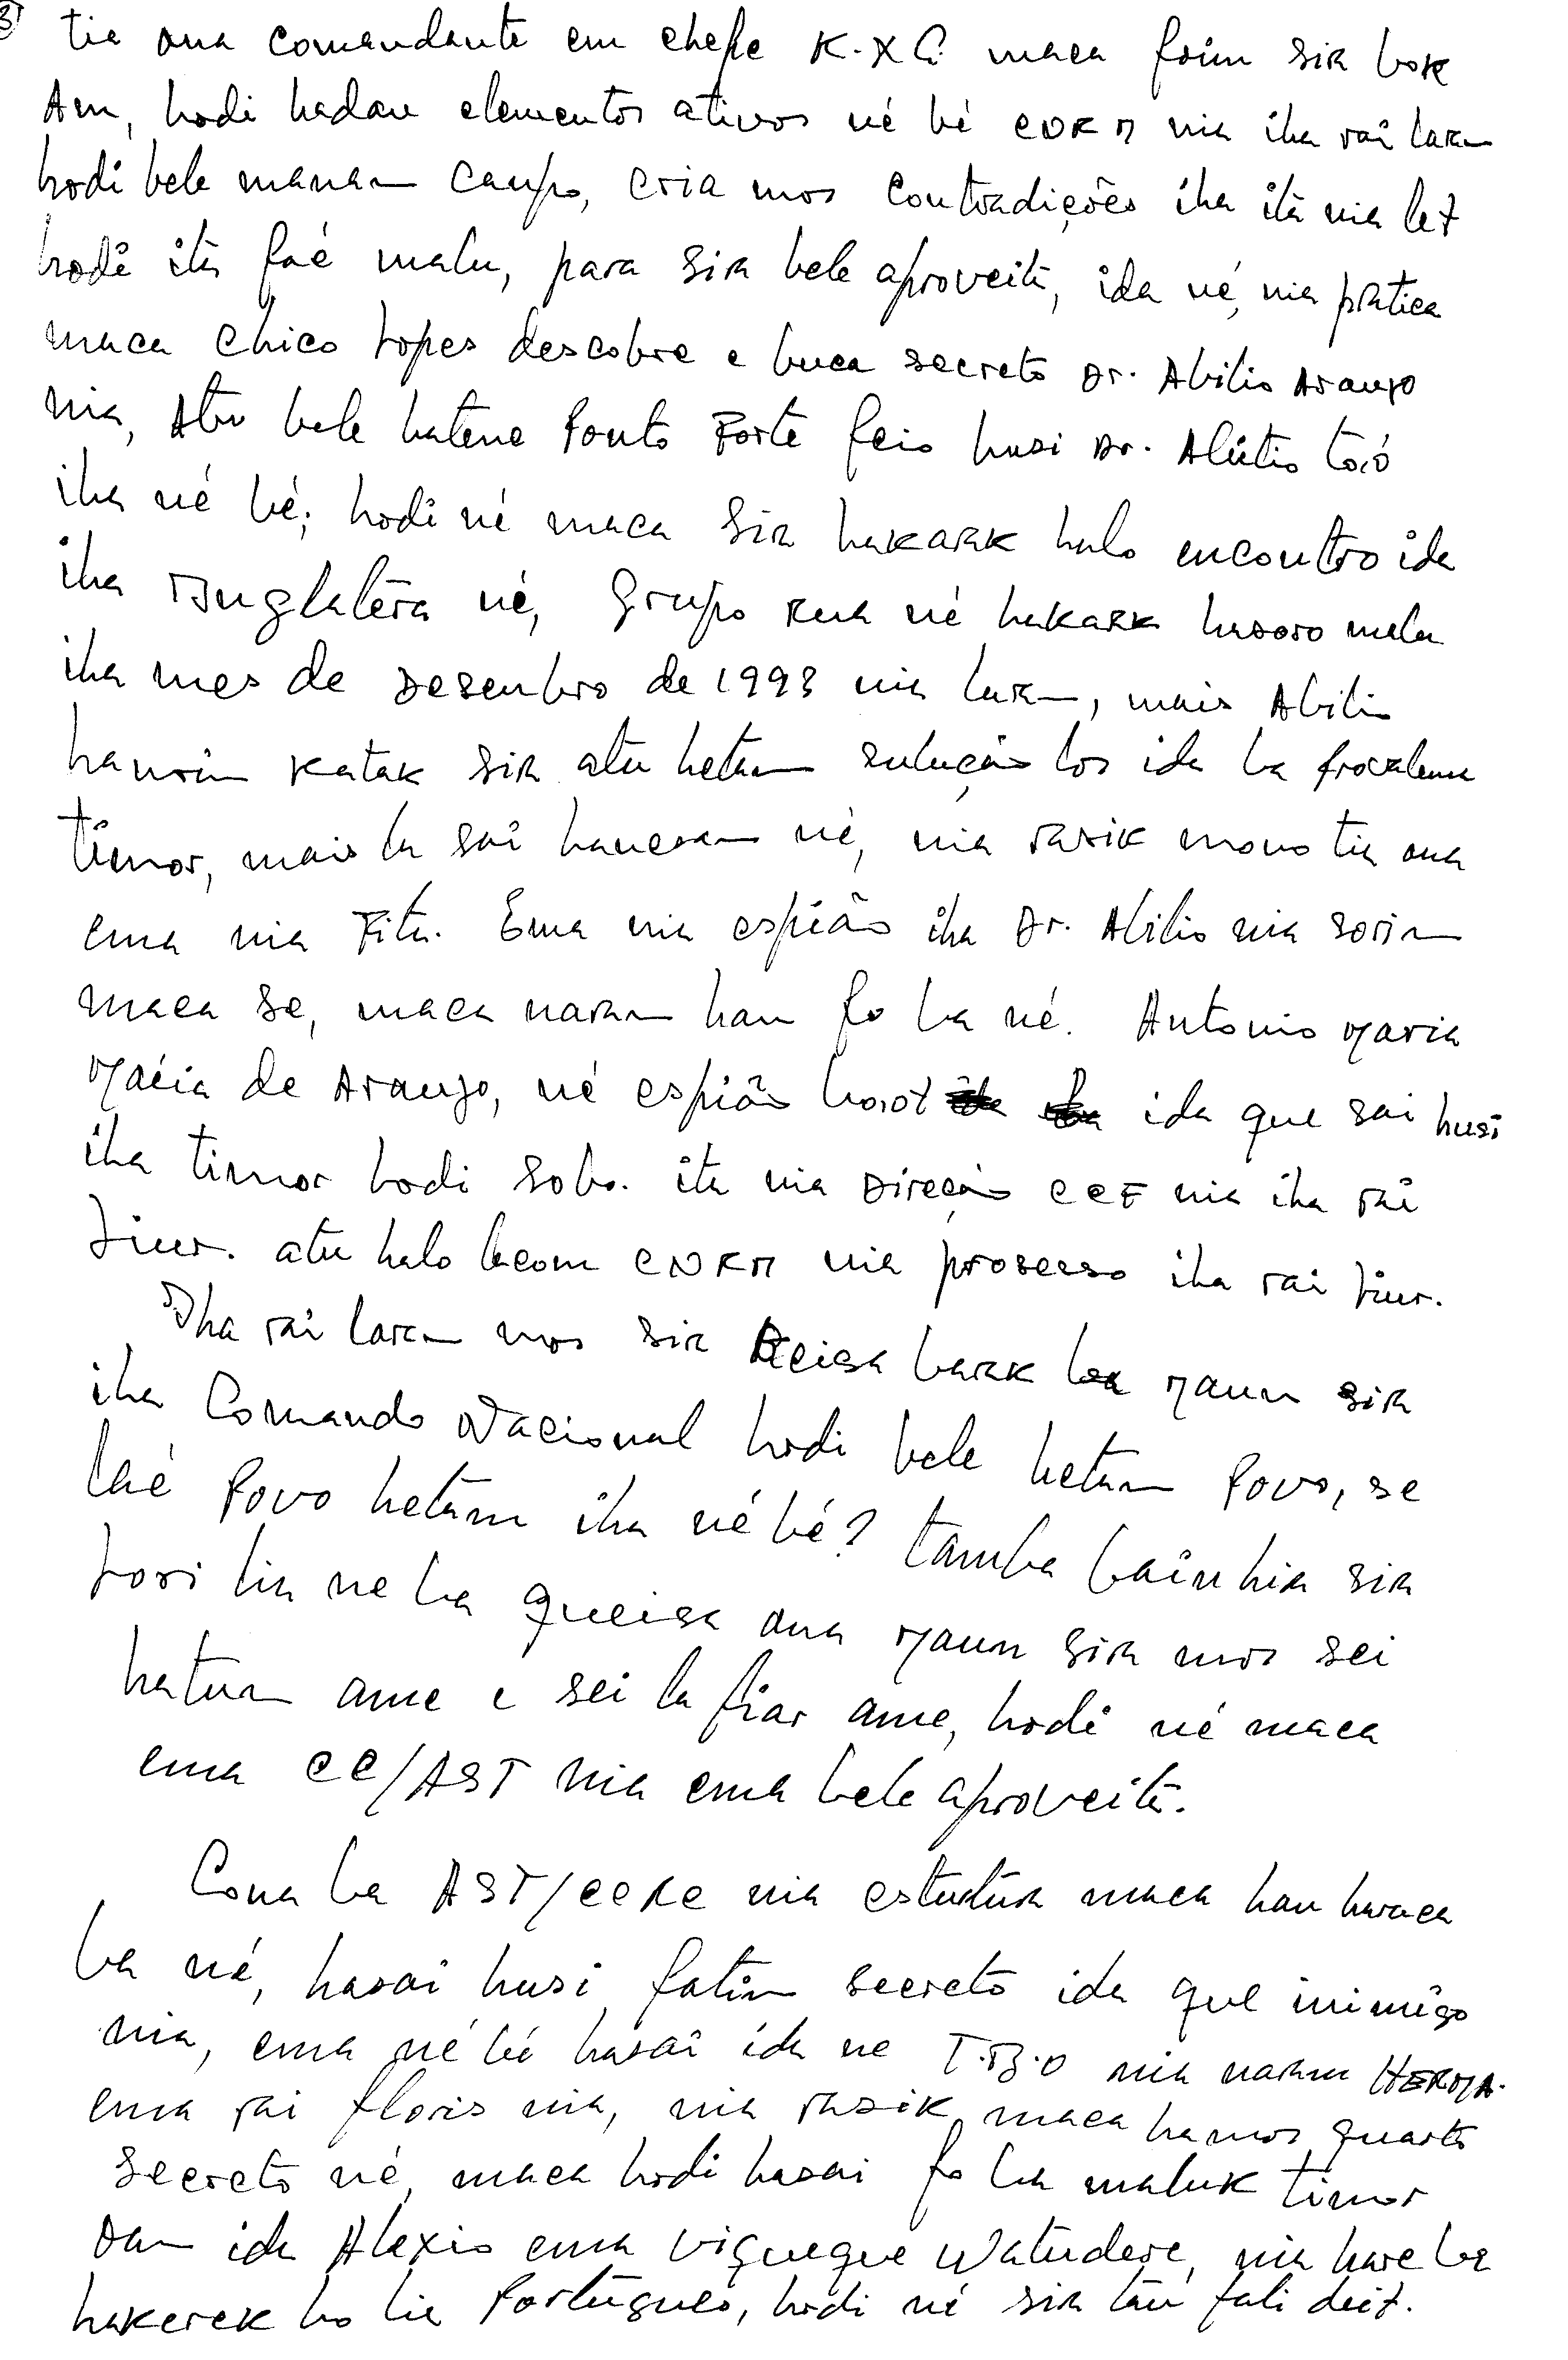 3
tia ona comandante em chefe K.X G. maca foin sira bok
Am, hodi hadau elementos ativos né bé CNRM nia iha rai laran
hodi bele manan campo, cria mos contradições iha ita nia let
hodi ita faé malu, para sira bele aproveita, ida né, nia pratica
maca Chico Lopes descobre e buca secreto Dr. Abilio Araujo
nia, Atu bele hatene Ponto Forte feio husi Dr. Abilio to,ó
iha né bé; hodi né maca sira hakarak halo encontro ida
iha Inglatêra né, Grupo rua né hakarak hasoro malu
iha mes de Desenbro de 1993 nia laran, mais Abilio
hanoin katak sira atu hetan solução los ida ba
timor, mais la sai hanesan né, nia rasik monu tia ona
ema nia Fitu. Ema nia espião iha Dr. Abilio nia sorin
maca se, maca naran hau fo ba né. Antonio Maria
Mácia de Araujo, né espião bo,ot ida que sai husi
iha timor hodi sobo. ita nia Direção CCF nia iha rai
liur. atu halo lacom CNRM nia prosesso iha rai liur.
Iha rai laran mos sira Qeisa barak ba Maun sira
iha Comando Nacional hodi bele hetan Povo, se
laé Povo hetan iha né bé? tamba bainhira sira
Lori lia ne ba queisa ona Maun sira mos sei
hatun ame e sei la fiar ame, hodi né maca
ema CC/AST nia ema bele aproveita.
Cona ba AST/CCRC nia estutura maca hau haraca
ba né, hasai husi fatin secreto ida que inimigo
nia, ema né bé hasai ida ne T.B.O nia naran HERMA.
ema rai floris nia, nia rasik maca hamos quarto
secreto né, maca hodi hasai fo ba maluk timor
oan ida Alexio ema viqueque Watudere, nia hare ba
hakerek ho lia Portugues, hodi né sira tau fali deit.